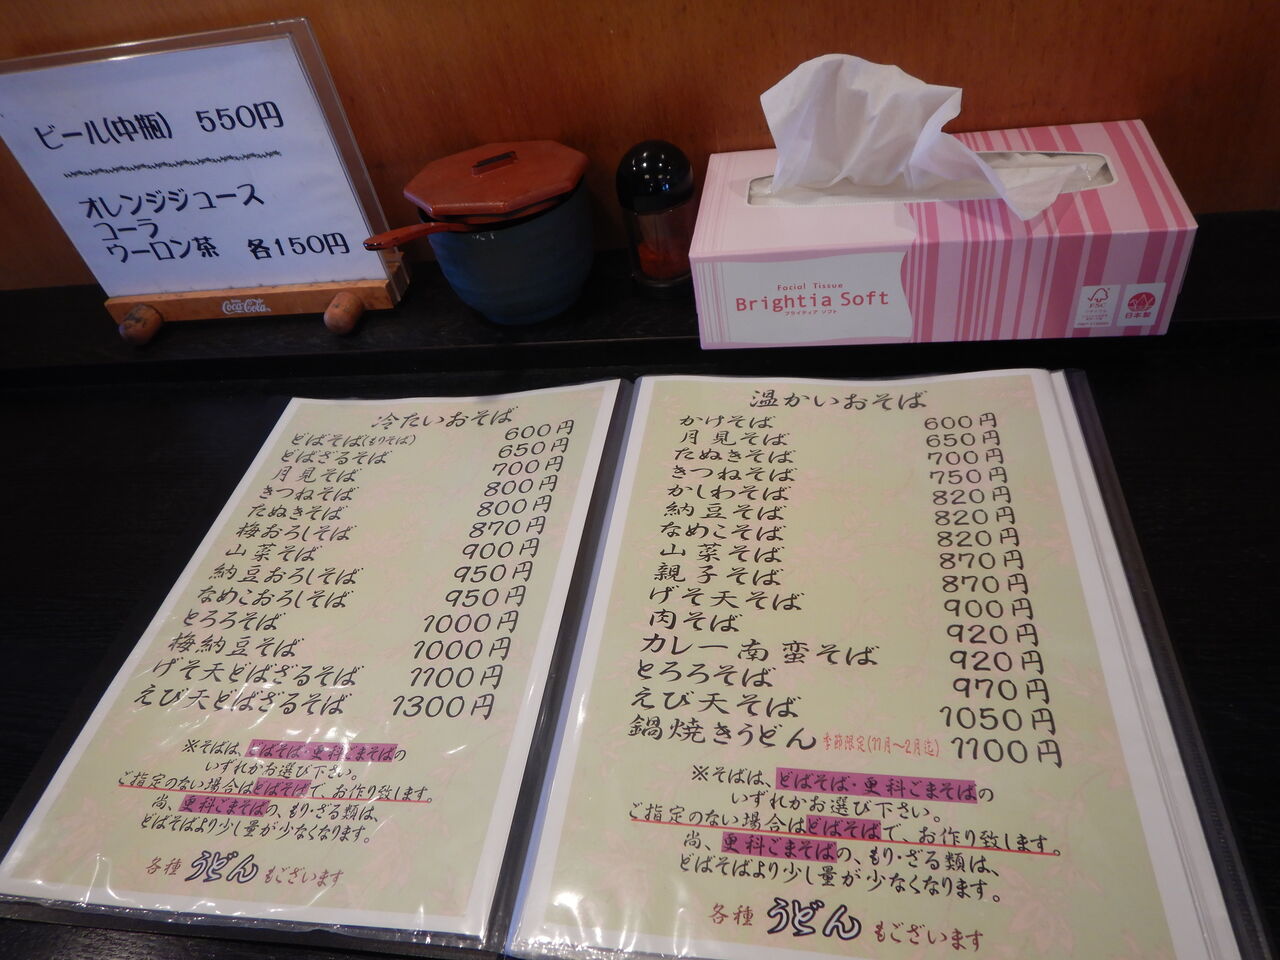 ビール(中瓶) 550円
オレンジジュース
コーラ
ウーロン茶 各150円
Coca-Cola
Facial Tissue
Brightia Soft
ブライティア ソフト
FSC
日本製
冷たいおそば
どばそば(もりそば) 600円
どばざるそば 650円
月見そば 700円
きつねそば 800円
たぬきそば 800円
梅おろしそば 870円
山菜そば 900円
納豆おろしそば 950円
なめこおろしそば 950円
とろろそば 1000円
梅納豆そば 1000円
げそ天どばざるそば 1100円
えび天どばざるそば 1300円
※そばは、どばそば・更科ごまそばの
いずれかお選び下さい。
ご指定のない場合はどばそばで、お作り致します。
尚、更科ごまそばの、もり・ざる類は、
どばそばより少し量が少なくなります。
各種 うどん もございます
温かいおそば
かけそば 600円
月見そば 650円
たぬきそば 700円
きつねそば 750円
かしわそば 820円
納豆そば 820円
なめこそば 820円
山菜そば 870円
親子そば 870円
げそ天そば 900円
肉そば 920円
カレー南蛮そば 920円
とろろそば 970円
えび天そば 1050円
鍋焼きうどん 季節限定(11月～2月迄) 1100円
※そばは、どばそば・更科ごまそばの
いずれかお選び下さい。
ご指定のない場合はどばそばで、お作り致します。
尚、更科ごまそばの、もり・ざる類は、
どばそばより少し量が少なくなります。
各種 うどん もございます